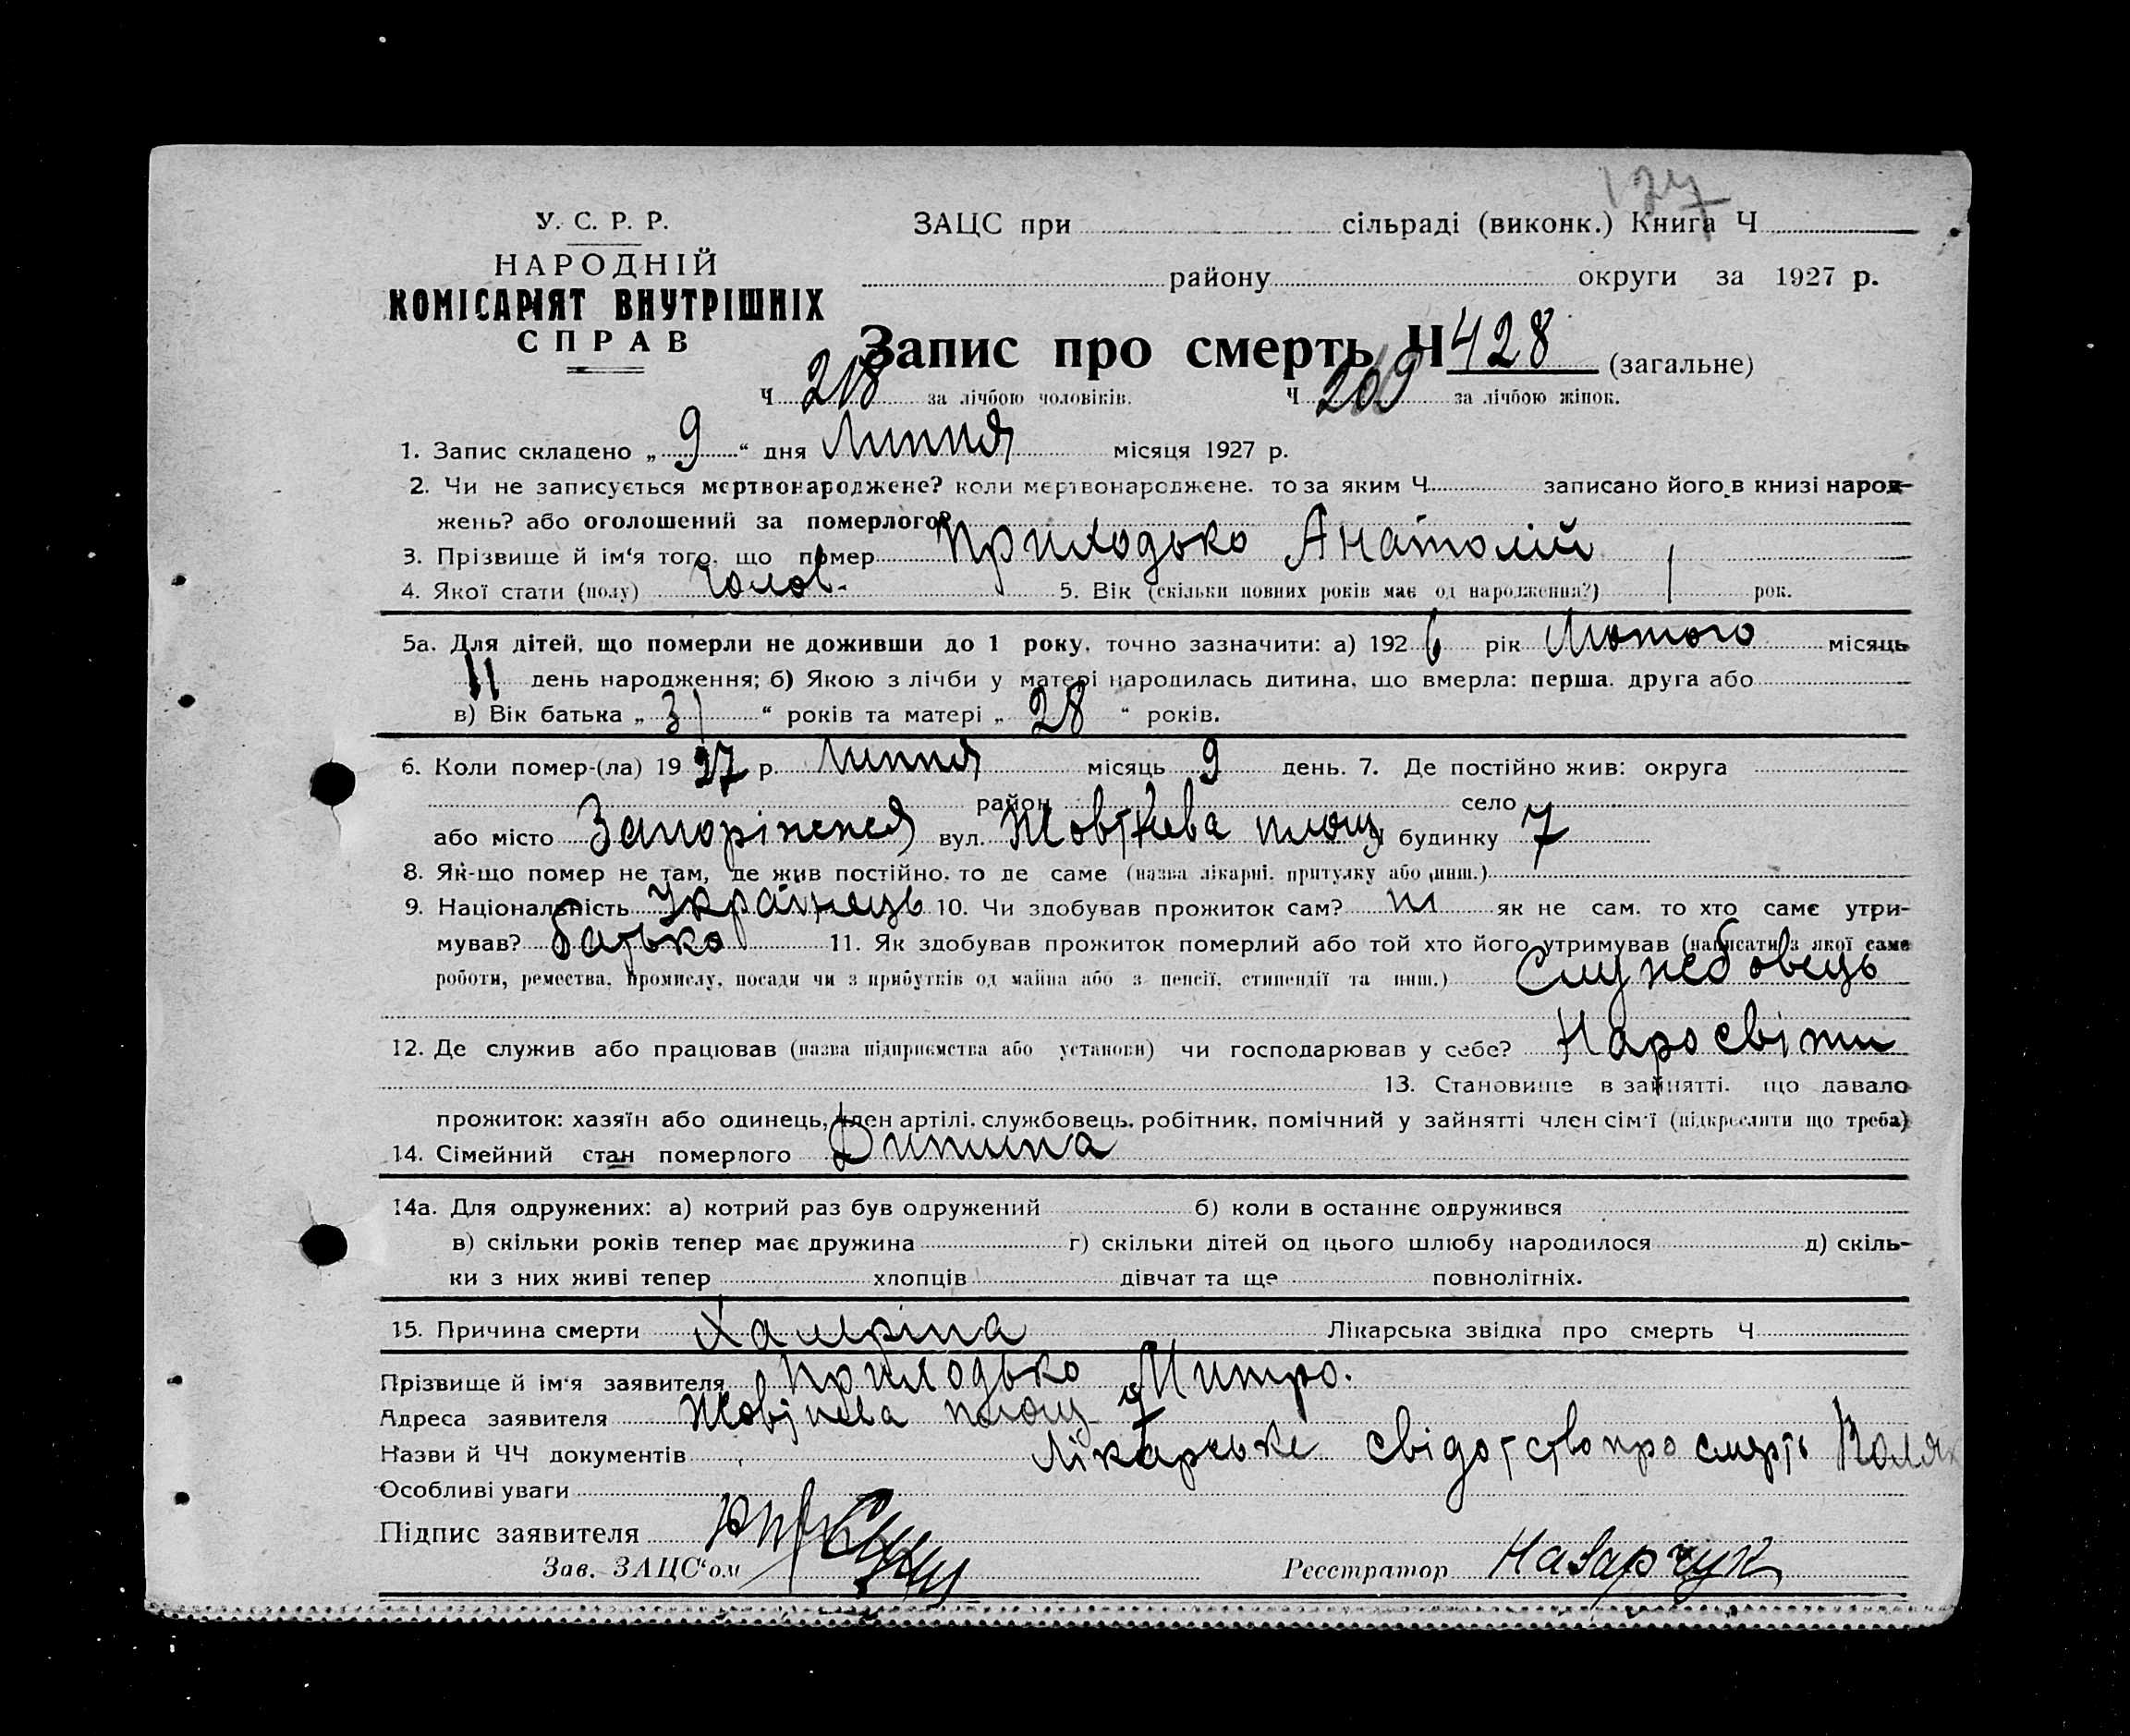 127
У. С. Р. Р.
НАРОДНІЙ
КОМІСАРІЯТ ВНУТРІШНІХ
СПРАВ
ЗАЦС при сільраді (виконк.) Книга Ч
району округи за 1927 р.
Запис про смерть Ч 428 (загальне)
Ч 218 за лічбою чоловіків. Ч 209 за лічбою жінок.
1. Запис складено „ 9 “ дня Липня місяця 1927 р.
2. Чи не записується мертвонароджене? коли мертвонароджене, то за яким Ч записано його в книзі народ-
жень? або оголошений за померлого?
3. Прізвище й ім‘я того, що помер Приходько Анатолій
4. Якої стати (полу) Чолов. 5. Вік (скільки повних років має од народження?) 1 рок.
5а. Для дітей, що померли не доживши до 1 року, точно зазначити: а) 192 6 рік Лютого місяць
11 день народження; б) Якою з лічби у матері народилась дитина, що вмерла: перша, друга або
в) Вік батька „ 31 “ років та матері „ 28 “ років.
6. Коли помер-(ла) 19 27 р. Липня місяць 9 день. 7. Де постійно жив: округа
район село
або місто Запоріжжя вул. Жовтнева площ будинку 7
8. Як-що помер не там, де жив постійно, то де саме (назва лікарні, притулку або инш.)
9. Національність Українець 10. Чи здобував прожиток сам? ні як не сам, то хто саме утри-
мував? батько 11. Як здобував прожиток померлий або той хто його утримував (написати з якої саме
роботи, ремества, промислу, посади чи з прибутків од майна або з пенсії, стипендії та инш.) Службовець
12. Де служив або працював (назва підприємства або установи) чи господарював у себе? Наросвіти
13. Становище в зайнятті, що давало
прожиток: хазяїн або одинець, член артілі, службовець, робітник, помічний у зайнятті член сім‘ї (підкреслити що треба)
14. Сімейний стан померлого Дитина
14а. Для одружених: а) котрий раз був одружений б) коли в останнє одружився
в) скільки років тепер має дружина г) скільки дітей од цього шлюбу народилося д) скіль-
ки з них живі тепер хлопців дівчат та ще повнолітніх.
15. Причина смерти Лікарська звідка про смерть Ч
Прізвище й ім‘я заявителя Приходько Митро.
Адреса заявителя Жовтнева площ 7
Назви й ЧЧ документів Лікарське свідотство про смерть
Особливі уваги
Підпис заявителя
Зав. ЗАЦС‘ом Реєстратор Назарчук